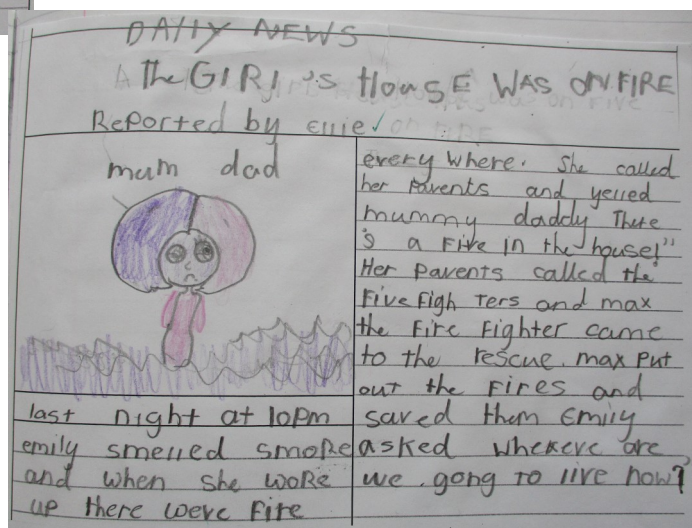 DAILY NEWS
The GIRl's HousE WAS ON FIRE
Reported by Ellie
mum dad
last night at 10pm
emily smelled smoke
and when she woke
up there were fire
every where. She called
her parents and yelled
mummy daddy There
's a Fire in the house!"
Her parents called the
Firefigh ters and max
the Fire Fighter came
to the rescue. max put
out the Fires and
saved them Emily
asked where are
we gong to live now?